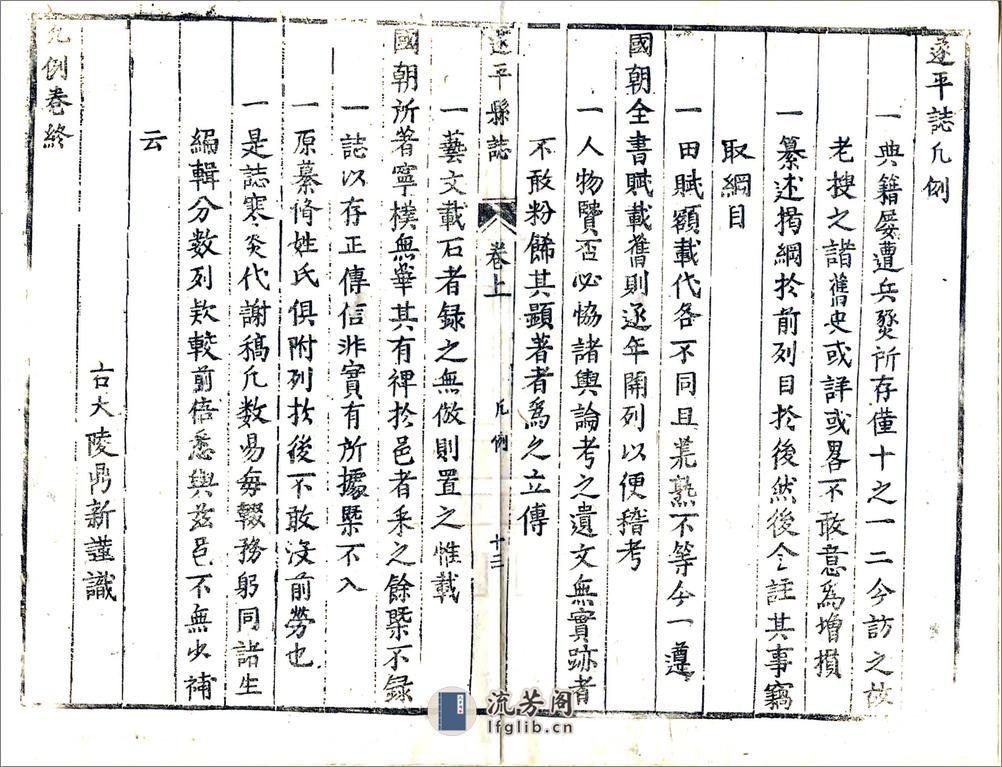 遂平誌凡例
一典籍屡遭兵燹所存僅十之一二今訪之故
老搜之諸舊史或詳或畧不敢意為增損
一纂述揭綱於前列目於後然後今註其事竊
取綱目
一田賦額載代各不同且荒熟不等今一遵
國朝全書賦載舊則逐年開列以便稽考
一人物賢否必協諸輿論考之遺文無實跡者
不敢粉餙其顯著者為之立傳
遂平縣誌
卷上
凡例
十三
一藝文載石者録之無倣則置之惟載
國朝所著寧樸無華其有裨於邑者釆之餘槩不録
一誌以存正傳信非實有所據槩不入
一原纂脩姓氏俱附列於後不敢沒前勞也
一是誌寒炎代謝稿凡数易每輟務躬同諸生
編輯分数列欵較前倍悉與兹邑不無少補
云
古大陵鼎新謹識
凡例卷終
流芳阁
lfglib.cn